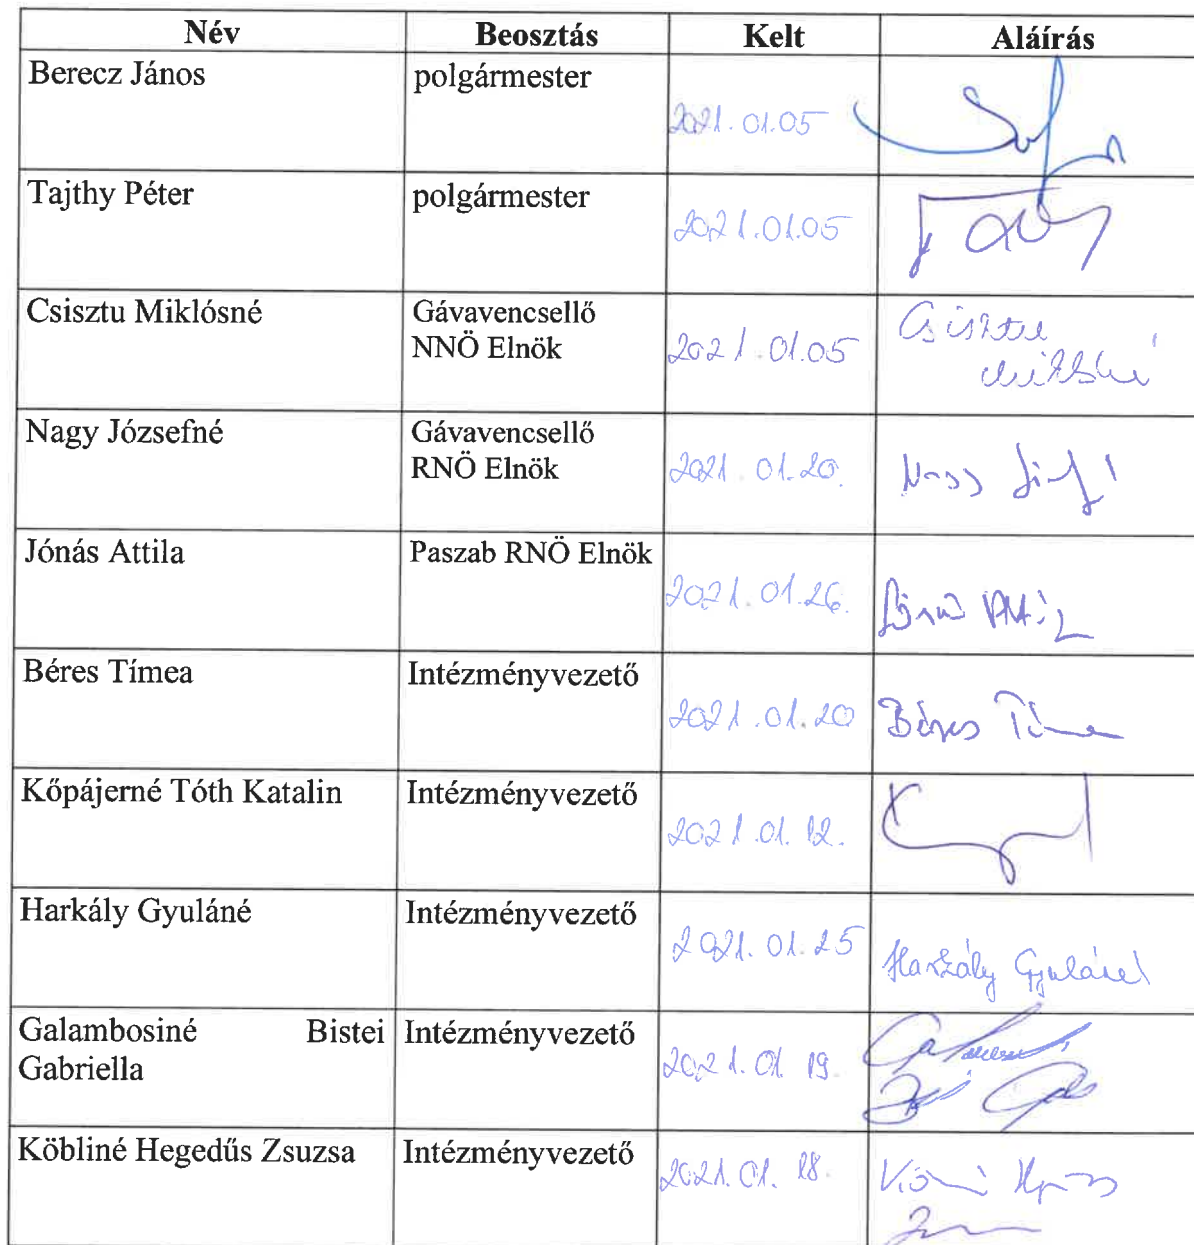 Név Beosztás Kelt Aláírás
Berecz János polgármester
2021.01.05
Tajthy Péter polgármester
2021.01.05
Csisztu Miklósné Gávavencsellő
NNÖ Elnök 2021.01.05 Csisztu
Miklósné
Nagy Józsefné Gávavencsellő
RNÖ Elnök 2021.01.20.
Jónás Attila Paszab RNÖ Elnök
2021.01.26.
Béres Tímea Intézményvezető
2021.01.20 Béres Tímea
Kőpájerné Tóth Katalin Intézményvezető
2021.01.12.
Harkály Gyuláné Intézményvezető
2021.01.25 Harkály Gyuláné
Galambosiné Bistei Intézményvezető
Gabriella 2021.01.19.
Köbliné Hegedűs Zsuzsa Intézményvezető
2021.01.18.